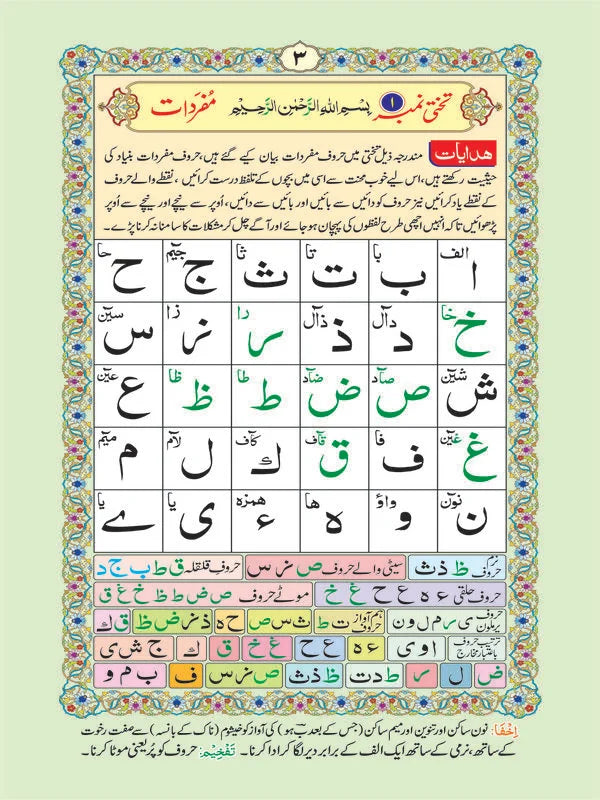 ۳
تختی نمبر ۱ بِسْمِ اللهِ الرَّحْمٰنِ الرَّحِیْمِ مُفرَدَات
ھدایات مندرجہ ذیل تختی میں حروف مفردات بیان کیے گئے ہیں، حروف مفردات بنیاد کی
حیثیت رکھتے ہیں، اس لیے خوب محنت سے اسی میں بچوں کے تلفظ درست کرائیں، نقطے والے حروف
کے نقطے یاد کرائیں نیز حروف کو دائیں سے بائیں اور بائیں سے دائیں، اُوپر سے نیچے اور نیچے سے اُوپر
پڑھوائیں تاکہ انہیں اچھی طرح لفظوں کی پہچان ہو جائے اور آگے چل کر مشکلات کا سامنا نہ کرنا پڑے۔
الف با تا ثا جیٓم حا
ا ب ت ث ج ح
خا دآل ذآل را زا سیٓن
خ د ذ ر ز س
شیٓن صآد ضآد طا ظا عیٓن
ش ص ض ط ظ ع
غیٓن فا قآف کآف لآم میٓم
غ ف ق ك ل م
نوٓن وآؤ ھا ھمزہ یا یا
ن و ہ ء ی ے
نرم حروف ظ ذ ث سیٹی والے حروف ص ز س حروف قلقلہ ق ط ب ج د
حروف حلقی ء ہ ع ح غ خ موٹے حروف ص ض ط ظ خ غ ق
حروف یرملون ی ر م ل و ن ہم آواز نرم حروف ت ط ث س ص ح ہ ذ ز ض ظ ق ك
ترتیب حروف باعتبار مخارج ا و ی ء ہ ع ح غ خ ق ك ج ش ی
ض ل ر ط د ت ظ ذ ث ص ز س ف ب م و
اِخفَا: نون ساکن اور تنوین اور میم ساکن (جس کے بعد ب ہو) کی آواز کو خیشوم (ناک کے بانسہ) سے صفت رخوت
کے ساتھ، نرمی کے ساتھ ایک الف کے برابر دیر لگا کر ادا کرنا۔ تَفْخِیْم: حروف کو پُر یعنی موٹا کرنا۔